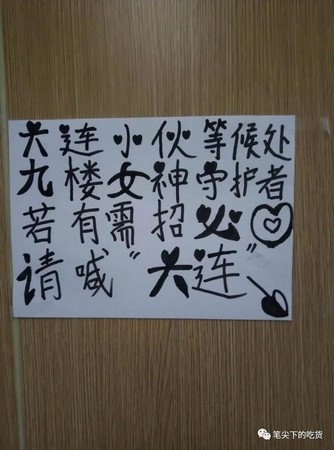 大连小伙等候处
九楼女神守护者
若有需招必
请喊"大连"
笔尖下的吃货